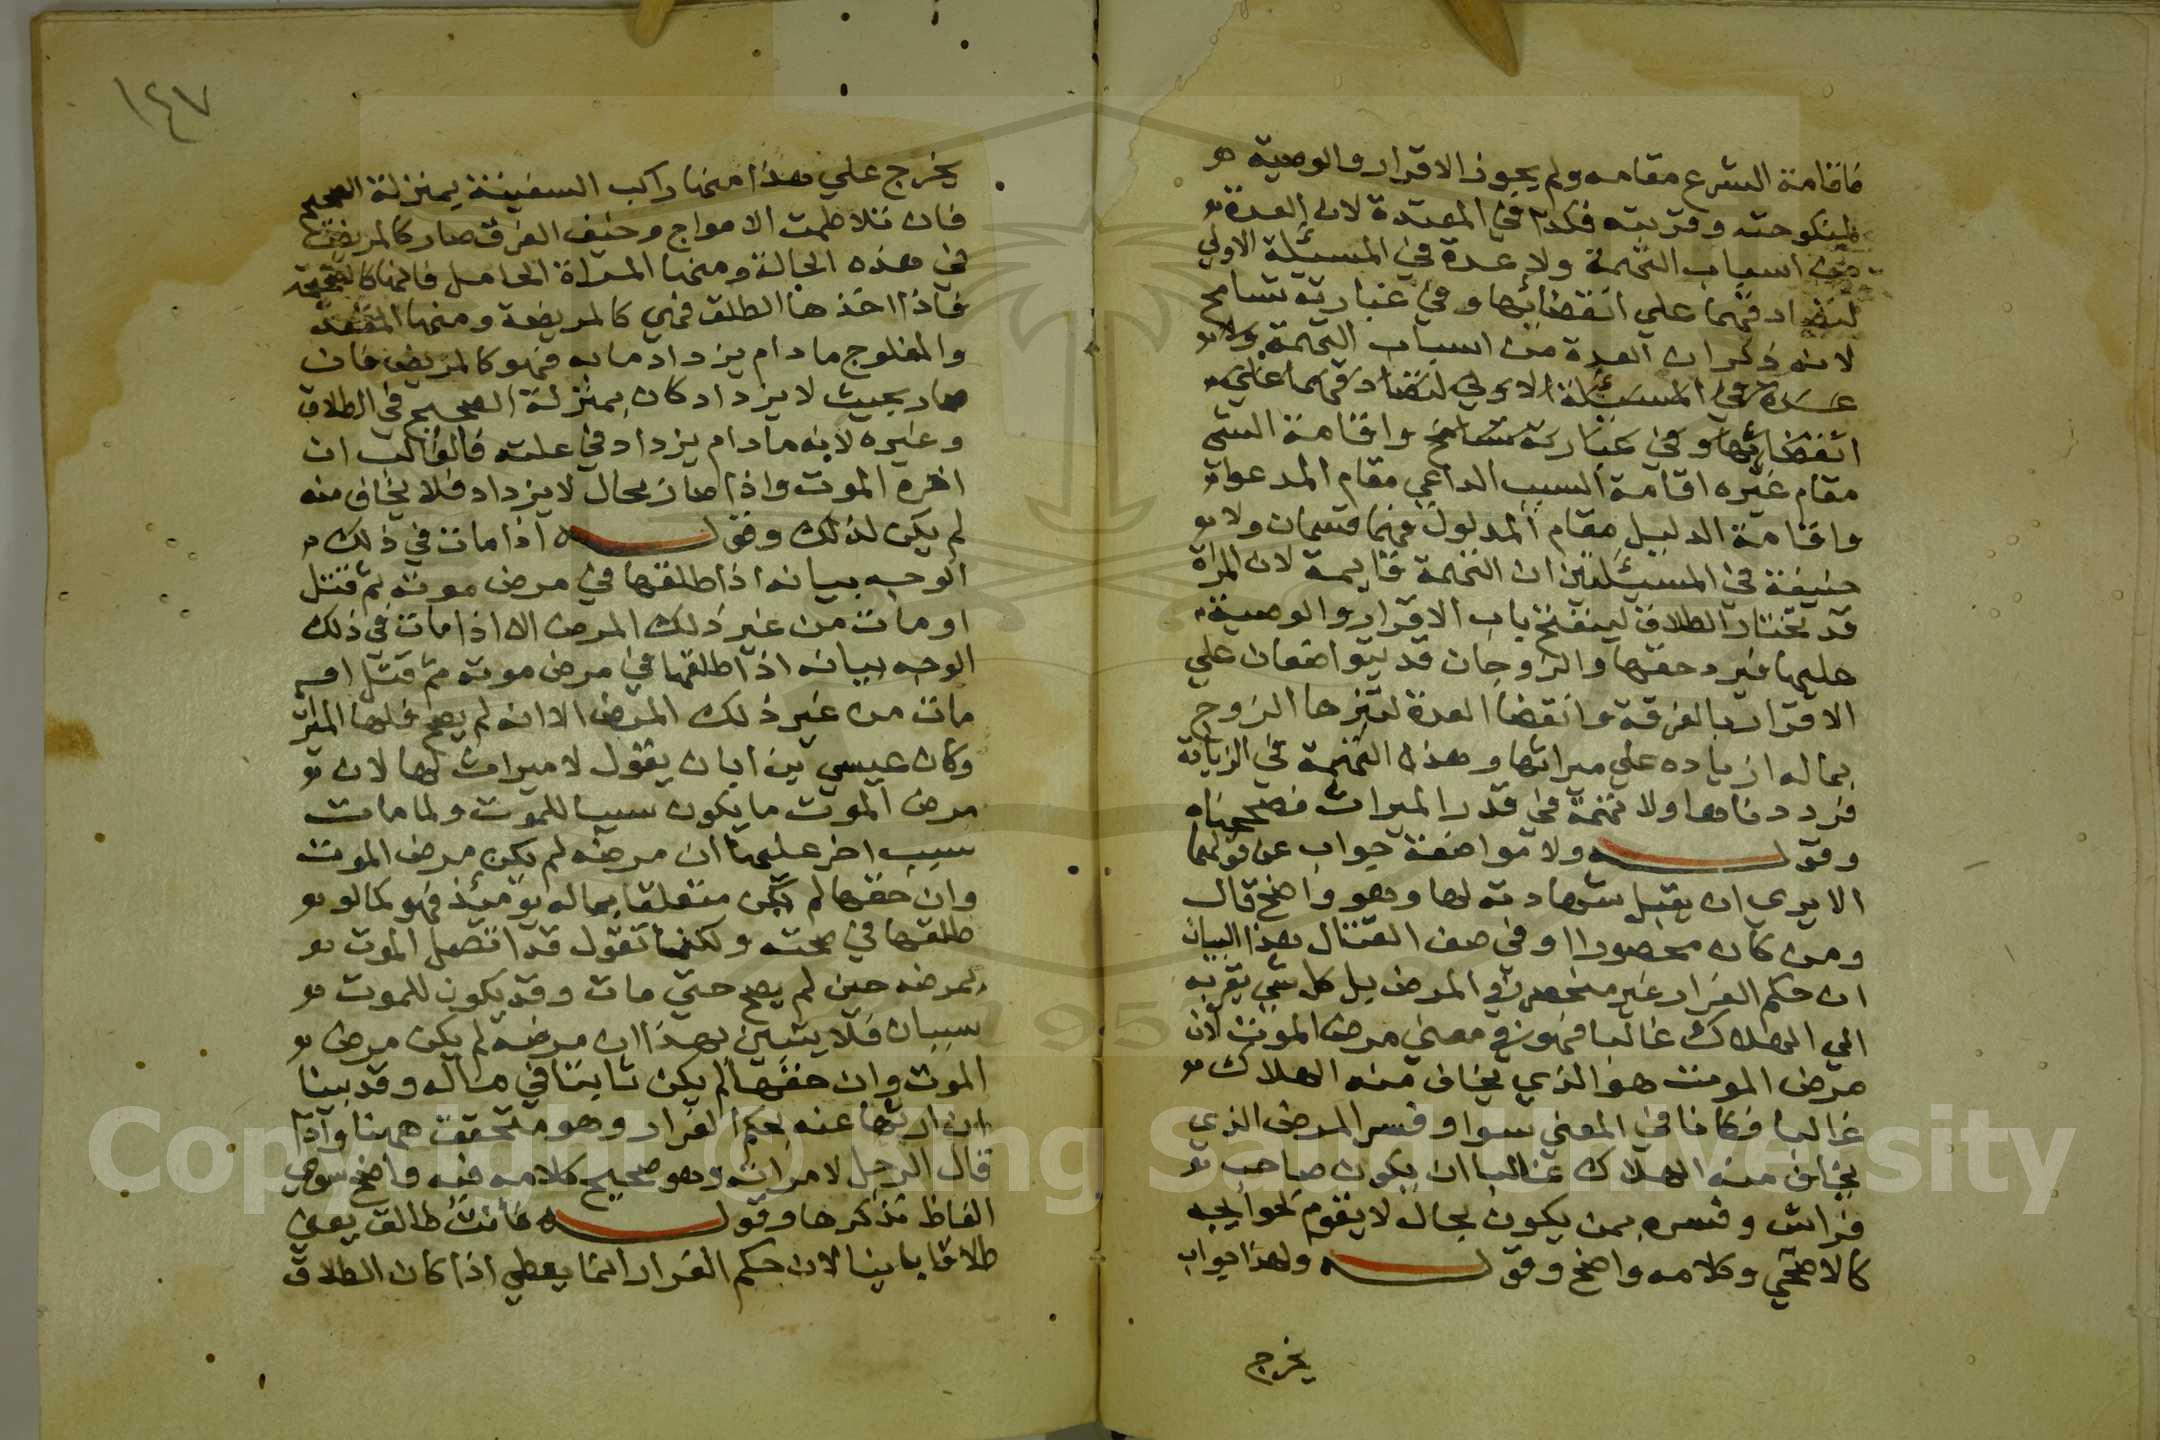 فاقامة الشرع مقامه ولم يجوز الاقرار والوصية
لمنكوحته وقريبه فكذا في المعتدة لان العدة
من اسباب التهمة ولا عدة في المسيلة الاولي
لتصادقهما علي انقضائها وفي عبارته تسامح
لانه ذكر ان العدة من اسباب التهمة ولا
عدة في المسئلة الاولي لتصادقهما علي
انقضائها وفي عبارته تسامح واقامة الشي
مقام غيره اقامة السبب الداعي مقام المدعو
واقامة الدليل مقام المدلول فهما قسمان ولا
حنيفة في المسيئلتين ان التهمة قايمة لان المراة
قد تختار الطلاق لينفتح باب الاقرار والوصية
عليها فيرد حقها والزوجان قد يتواضعان علي
الاقرار بالفرقة وانقضا العدة ليبرها الزوج
بماله ازياده علي ميراثها وهذه التهمة في الزيادة
فرددناها ولا تهمة في قدر الميراث فصححناه
وقوله ولا مواضعة جواب عن قولهما
الا يري ان يقبل شهادته لها وهو واضح قال
ومن كان محصورا او في صف القتال هذا البيان
ان حكم الفرار غير منحصر في المرض بل كل شي يقربه
الي الهلاك غالبا فهو في معني مرض الموت لان
مرض الموت هو الذي يخاف منه الهلاك
غالبا فكانا في المعني سوا وفسر المرض الذي
يخاف منه الهلاك غالبا ان يكون صاحب
فراش وفسره بمن يكون بحال لا يقوم بحوايجه
كالاصحي وكلامه واضح وقوله ولهذا جواب
يخرج
١٤٧
يخرج علي هذا منها راكب السفينة بمنزلة الصحيح
فان تلاطمت الامواج وخيف الغرق صار كالمريض
في هذه الحالة ومنها المراة الحامل فانها كالصحيحة
فاذا اخذها الطلق فهي كالمريضة ومنها المقعد
والمفلوج مادام يزداد ما به فهو كالمريض فان
صار بحيث لا يزداد كان بمنزلة الصحيح في الطلاق
وغيره لانه مادام يزداد في علته فالغالب ان
اخره الموت واذا صار بحال لا يزداد فلا يخاف منه
لم يكن لذلك وقوله اذا مات في ذلك
الوجه بيانه اذا طلقها في مرض موته ثم قتل
او مات من غير ذلك المرض الا اذا مات في ذلك
الوجه بيانه اذا طلقها في مرض موته ثم قتل او
مات من غير ذلك المرض الا انه لم يصح فلها الميراث
وكان عيسي بن ابان يقول لا ميراث لها لان
مرض الموت ما يكون سببا للموت ولما مات
سبب اخر علمنا ان مرضه لم يكن مرض الموت
وان حقها لم يكن متعلقا بماله يومئذ فهو كما لو
طلقها في صحته ولكنا نقول قد اتصل الموت
بمرضه حين لم يصح حتي مات وقد يكون للموت
سببان فلا يتبين بهذا ان مرضه لم يكن مرض
الموت وان حقها لم يكن ثابتا في ماله وقد بينا
ان ارثها عنه بحكم الفرار وهو متحقق ههنا واذا
قال الرجل لامراته وهو صحيح كلامه فيه واضح سوي
الفاظ نذكرها وقوله فانت طالق يعني
طلاقا باينا لان حكم الفرار انما يعطي اذا كان الطلاق